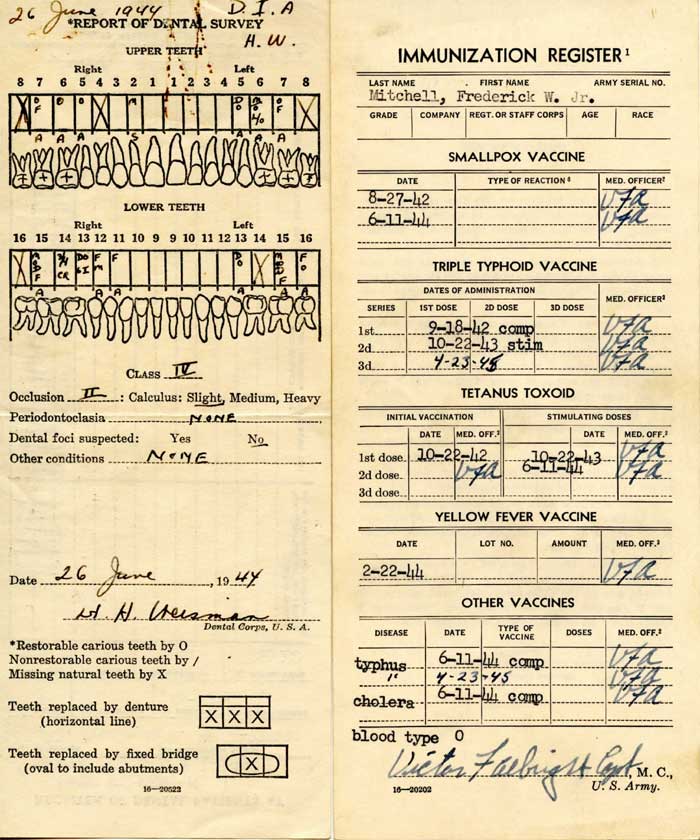 26 June 1944 D. I. A
*REPORT OF DENTAL SURVEY
H. W.
UPPER TEETH
Right Left
8 7 6 5 4 3 2 1 1 2 3 4 5 6 7 8
LOWER TEETH
Right Left
16 15 14 13 12 11 10 9 9 10 11 12 13 14 15 16
CLASS IV
Occlusion II : Calculus: Slight, Medium, Heavy
Periodontoclasia NONE
Dental foci suspected: Yes No
Other conditions NONE
Date 26 June, 1944
H. Weisman
Dental Corps, U. S. A.
*Restorable carious teeth by O
Nonrestorable carious teeth by /
Missing natural teeth by X
Teeth replaced by denture
(horizontal line)
X X X
Teeth replaced by fixed bridge
(oval to include abutments)
X
16—20522
IMMUNIZATION REGISTER¹
LAST NAME FIRST NAME ARMY SERIAL NO.
Mitchell, Frederick W. Jr.
GRADE COMPANY REGT. OR STAFF CORPS AGE RACE
SMALLPOX VACCINE
DATE TYPE OF REACTION³ MED. OFFICER²
8-27-42 VFA
6-11-44 VFA
TRIPLE TYPHOID VACCINE
DATES OF ADMINISTRATION MED. OFFICER²
SERIES 1ST DOSE 2D DOSE 3D DOSE
1st 9-18-42 comp VFA
2d 10-22-43 stim VFA
3d 4-23-45 VFA
TETANUS TOXOID
INITIAL VACCINATION STIMULATING DOSES
DATE MED. OFF.² DATE MED. OFF.²
1st dose 10-22-42 10-22-43 VFA
2d dose VFA 6-11-44 VFA
3d dose
YELLOW FEVER VACCINE
DATE LOT NO. AMOUNT MED. OFF.²
2-22-44 VFA
OTHER VACCINES
DISEASE DATE TYPE OF VACCINE DOSES MED. OFF.²
typhus 6-11-44 comp VFA
" 4-23-45 VFA
cholera 6-11-44 comp VFA
blood type O
Victor Falbright Capt, M. C.,
16—20202 U. S. Army.